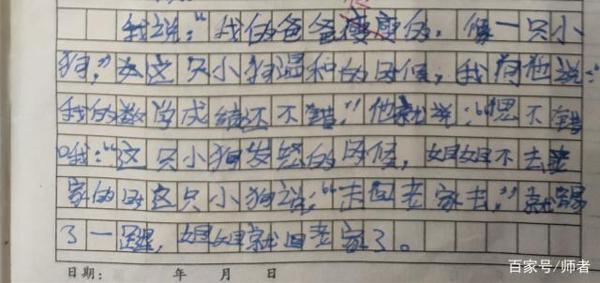 我说:“我的爸爸瘦瘦的。像一只小
狗,”如这只小狗温和的时候,我向他说:
我的数学成绩还不错,”他就说:“嗯不错
哦:“这只小狗发怒的时候,姐姐不去老
家的时这只小狗说:“走回老家去,”就踢
了一腿,姐姐就回老家了。
日期: 年 月 日
百家号/师者